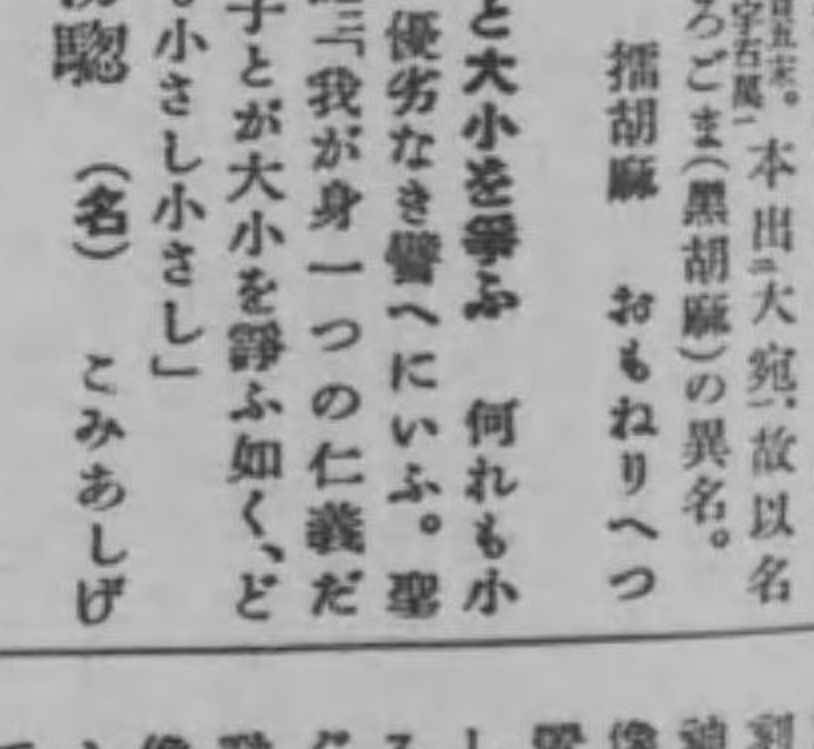 本出ニ大宛一、故以名
ろごま（黑胡麻）の異名。
擂胡麻　おもねりへつ
と大小を爭ふ　何れも小
優劣なき譬へにいふ。聖
「我が身一つの仁義だ
子とが大小を諍ふ如く、ど
小さし小さし」
騘　（名）　こみあしげ